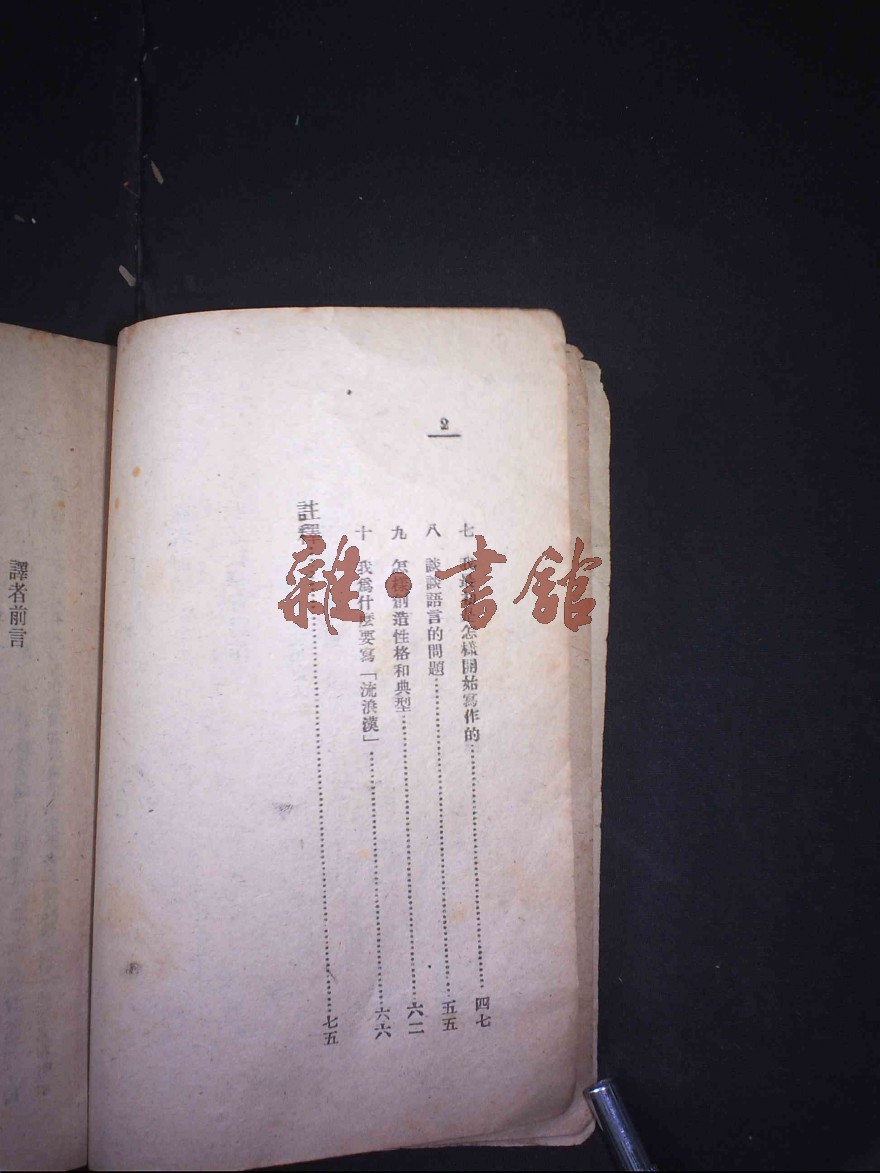 2
七 我最初是怎樣開始寫作的……四七
八 談談語言的問題……五五
九 怎樣創造性格和典型……六二
十 我爲什麼要寫「流浪漢」……六六
註釋……七五
譯者前言
雜·書館